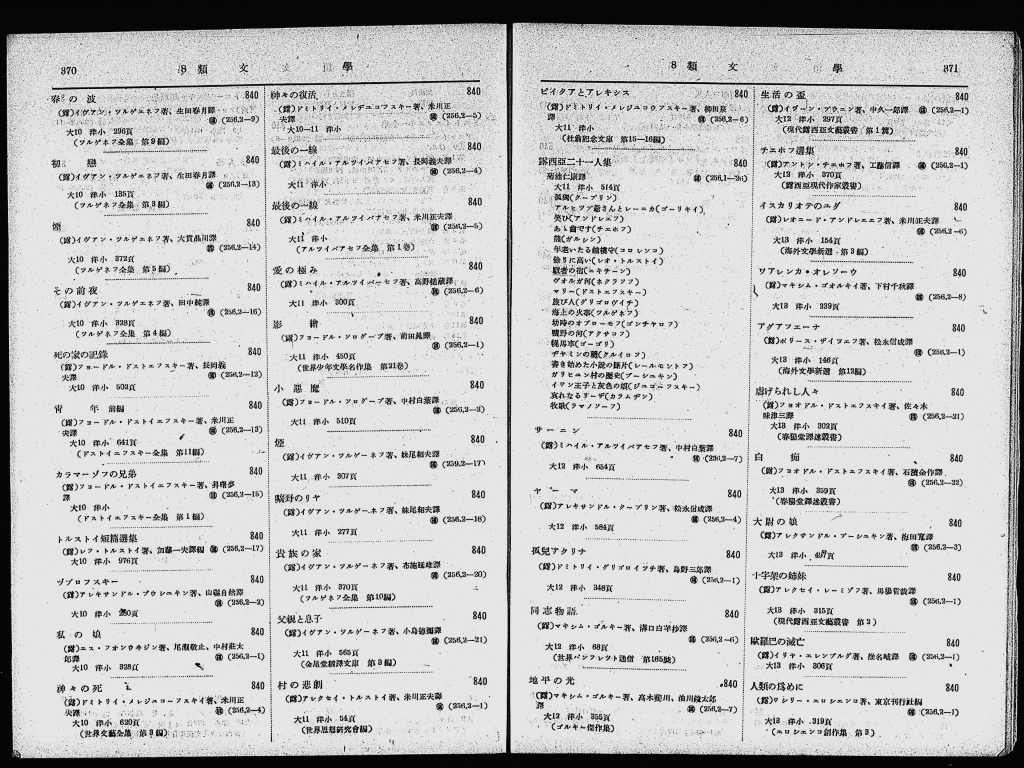 370 8類 文 學
春の波 840
(露)イヴアン・ツルゲエネフ著、生田春月譯
(256,2—9)
大10 洋小 296頁
(ツルゲネフ全集 第9編)
初 戀 840
(露)イヴアン・ツルゲエネフ著、生田春月譯
(256,2—13)
大10 洋小 135頁
(ツルゲネフ全集 第3編)
煙 840
(露)イヴアン・ツルゲネフ著、大貫晶川譯
(256,2—14)
大10 洋小 372頁
(ツルゲネフ全集 第5編)
その前夜 840
(露)イヴアン・ツルゲネフ著、田中純譯
(256,2—16)
大10 洋小 328頁
(ツルゲネフ全集 第4編)
死の家の記錄 840
(露)フヨードル・ドストエフスキー著、長岡義
夫譯 (256,2—12)
大10 洋小 503頁
靑 年 前編 840
(露)フヨードル・ドストイエフスキー著、米川正
夫譯 (256,2—13)
大10 洋小 641頁
(ドストイエフスキー全集 第11編)
カラマーゾフの兄弟 840
(露)フヨードル・ドストイエフスキー著、昇曙夢
譯 (256,2—15)
大10 洋小
(ドストイエフスキー全集 第1編)
トルストイ短篇選集 840
(露)レフ・トルストイ著、加藤一夫譯編 (256,2—17)
大10 洋小 976頁
ヅブロフスキー 840
(露)アレキサンドル・プウシユキン著、山縣自然譯
(256,2—2)
大10 洋小
私の娘 840
(露)エス・フオンウキジン著、尾瀨敬止、中村莊太
郎譯 (256,2—1)
大10 洋小 328頁
神々の死 840
(露)ドミトリイ・メレジユコーフスキー著、米川正
夫譯 (256,2—4)
大10 洋小 620頁
(世界文藝全集 第9編)
神々の復活 840
(露)ドミトリイ・メレヂユコフスキー著、米川正
夫譯 (256,2—5)
大10—11 洋小
最後の一線 840
(露)ミハイル・アルツイバアセフ著、長岡義夫譯
(256,2—4)
大11 洋小
最後の一線 840
(露)ミハイル・アルツイバアセフ著、米川正夫譯
(256,2—5)
大11 洋小
(アルツイバアセフ全集 第1卷)
愛の極み 840
(露)ミハイル・アルツイバーセフ著、高野槌藏譯
(256,2—6)
大11 洋小 300頁
影 繪 840
(露)フヨードル・ソログーブ著、前田晁譯
(256,2—1)
大11 洋小 450頁
(世界少年文學名作集 第21卷)
小惡魔 840
(露)フヨードル・ソログーブ著、中村白葉譯
(256,2—2)
大11 洋小 510頁
煙 840
(露)イヴアン・ツルゲーネフ著、妹尾韶夫譯
(259.2—17)
大11 洋小 307頁
曠野のリヤ 840
(露)イヴアン・ツルゲーネフ著、妹尾韶夫譯
(256,2—18)
大11 洋小 277頁
貴族の家 840
(露)イヴアン・ツルゲーネフ著、布施延雄譯
(256,2—20)
大11 洋小 370頁
(ツルゲーネフ全集 第10編)
父親と息子 840
(露)イヴアン・ツルゲーネフ著、小島德彌譯
(256,2—21)
大11 洋小 565頁
(金星堂飜譯文庫 第3編)
村の悲劇 840
(露)アレクセイ・トルストイ著、米川正夫譯
(256,2—1)
大11 洋小 54頁
(世界思想研究會編)
8類 文 學 371
ピイタアとアレキシス 840
(露)ドミトリイ・メレジユコウフスキー著、柳田泉
譯 (256,2—6)
大11 洋小
(杜翁記念文庫 第15—16編)
露西亞二十一人集 840
菊池仁康譯 (256,1—26)
大11 洋小 514頁
孤獨(クープリン)
アルヒツプ爺さんとレーニカ(ゴーリキイ)
笑ひ(アンドレエフ)
あゝ齒です(チエホフ)
熊(ガルシン)
年老いたる鐘樓守(コロレンコ)
餘りに高い(レオ・トルストイ)
馭者の宿(ニキチーン)
ヴオルガ河(ネクラソフ)
マリー(ドストエフスキー)
旅び人(グリゴロヴイチ)
海上の火事(ツルゲネフ)
幼時のオブローモフ(ゴンチヤロフ)
曠野の河(アクサコフ)
幌馬車(ゴーゴリ)
デヤミンの羹(クルイロフ)
書き始めた小說の斷片(レールモントフ)
ガリヒエン村の歷史(プーシユキン)
イワン王子と灰色の狼(ジユコーフスキー)
哀れなるリーザ(カラムヂン)
牧歌(ラマノソーフ)
サーニン 840
(露)ミハイル・アルツイバアセフ著、中村白葉譯
(256,2—7)
大12 洋小 654頁
ヤーマ 840
(露)アレキサンドル・クープリン著、松永信成譯
(256,2—4)
大12 洋小 584頁
孤兒アクリナ 840
(露)ドミトリイ・グリゴロイツチ著、島野三郎譯
(256,2—1)
大12 洋小 348頁
同志物語 840
(露)マキシム・ゴルキー著、溝口白羊抄譯
(256,2—6)
大12 洋小 68頁
(世界パンフレツト通信 第165號)
地平の光 840
(露)マキシム・ゴルキー著、高木斐川、油川鐘太郎
譯 (256,2—7)
大12 洋小 355頁
(ゴルキー傑作集)
生活の盃 840
(露)イヴーン・ブウニン著、中久一郎譯 (256,2—1)
大12 洋小 297頁
(現代露西亞文藝叢書 第1篇)
チエホフ選集 840
(露)アントン・チエホフ著、工藤信譯 (256,2—1)
大12 洋小 370頁
(露西亞現代作家叢書)
イスカリオテのユダ 840
(露)レオニード・アンドレエフ著、米川正夫譯
(256,2—6)
大13 洋小 154頁
(海外文學新選 第3編)
ワアレンカ・オレソーワ 840
(露)マキシム・ゴオルキイ著、下村千秋譯
(256,2—8)
大13 洋小 239頁
アグアフエーナ 840
(露)ボリース・ザイツエフ著、松永信成譯
(256,2—1)
大13 洋小 146頁
(海外文學新選 第12編)
虐げられし人々 840
(露)フヨオドル・ドストエフスキイ著、佐々木
味津三譯 (256,2—21)
大13 洋小 302頁
(春陽堂譯述叢書)
白 痴 840
(露)フヨオドル・ドストエフスキイ著、石濱金作譯
(256,2—22)
大13 洋小 359頁
(春陽堂譯述叢書)
大尉の娘 840
(露)アレクサンドル・プーシユキン著、梅田寬譯
(256,2—3)
大13 洋小
十字架の姉妹 840
(露)アレクセイ・レーミゾフ著、馬場哲哉譯
(256,2—1)
大13 洋小 315頁
(現代露西亞文藝叢書 第2)
歐羅巴の滅亡 840
(露)イリヤ・エレンブルグ著、澁名城譯 (256,2—1)
大13 洋小 306頁
人類の爲めに 840
(露)ワシリー・エロシエンコ著、東京刊行社編
(256,2—1)
大13 洋小 319頁
(エロシエンコ創作集 第3)